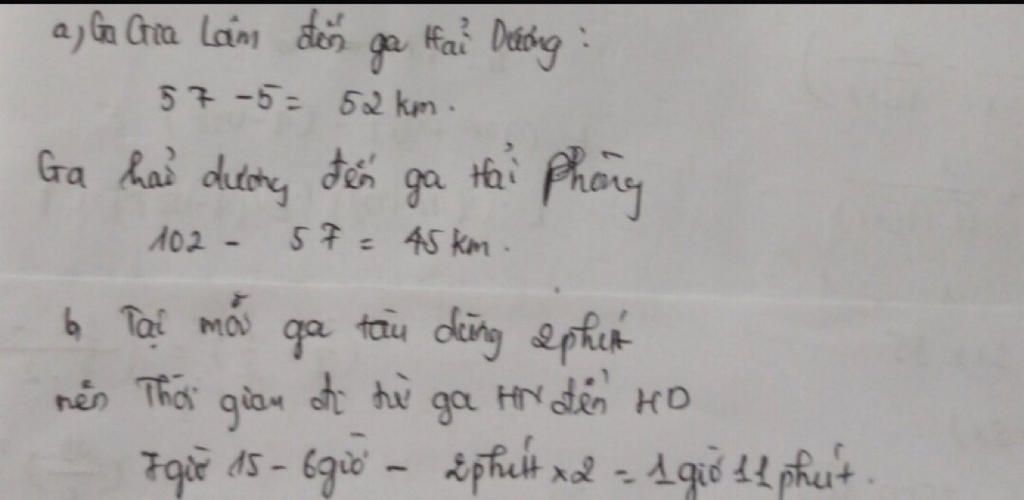 a, Ga Gia Lâm đến ga Hải Dương:
57 - 5 = 52 km.
Ga hải dương đến ga Hải Phòng
102 - 57 = 45 km.
b, Tại mỗi ga tàu dừng 2 phút
nên Thời gian đi từ ga HN đến HD
7 giờ 15 - 6 giờ - 2 phút x 2 = 1 giờ 11 phút.